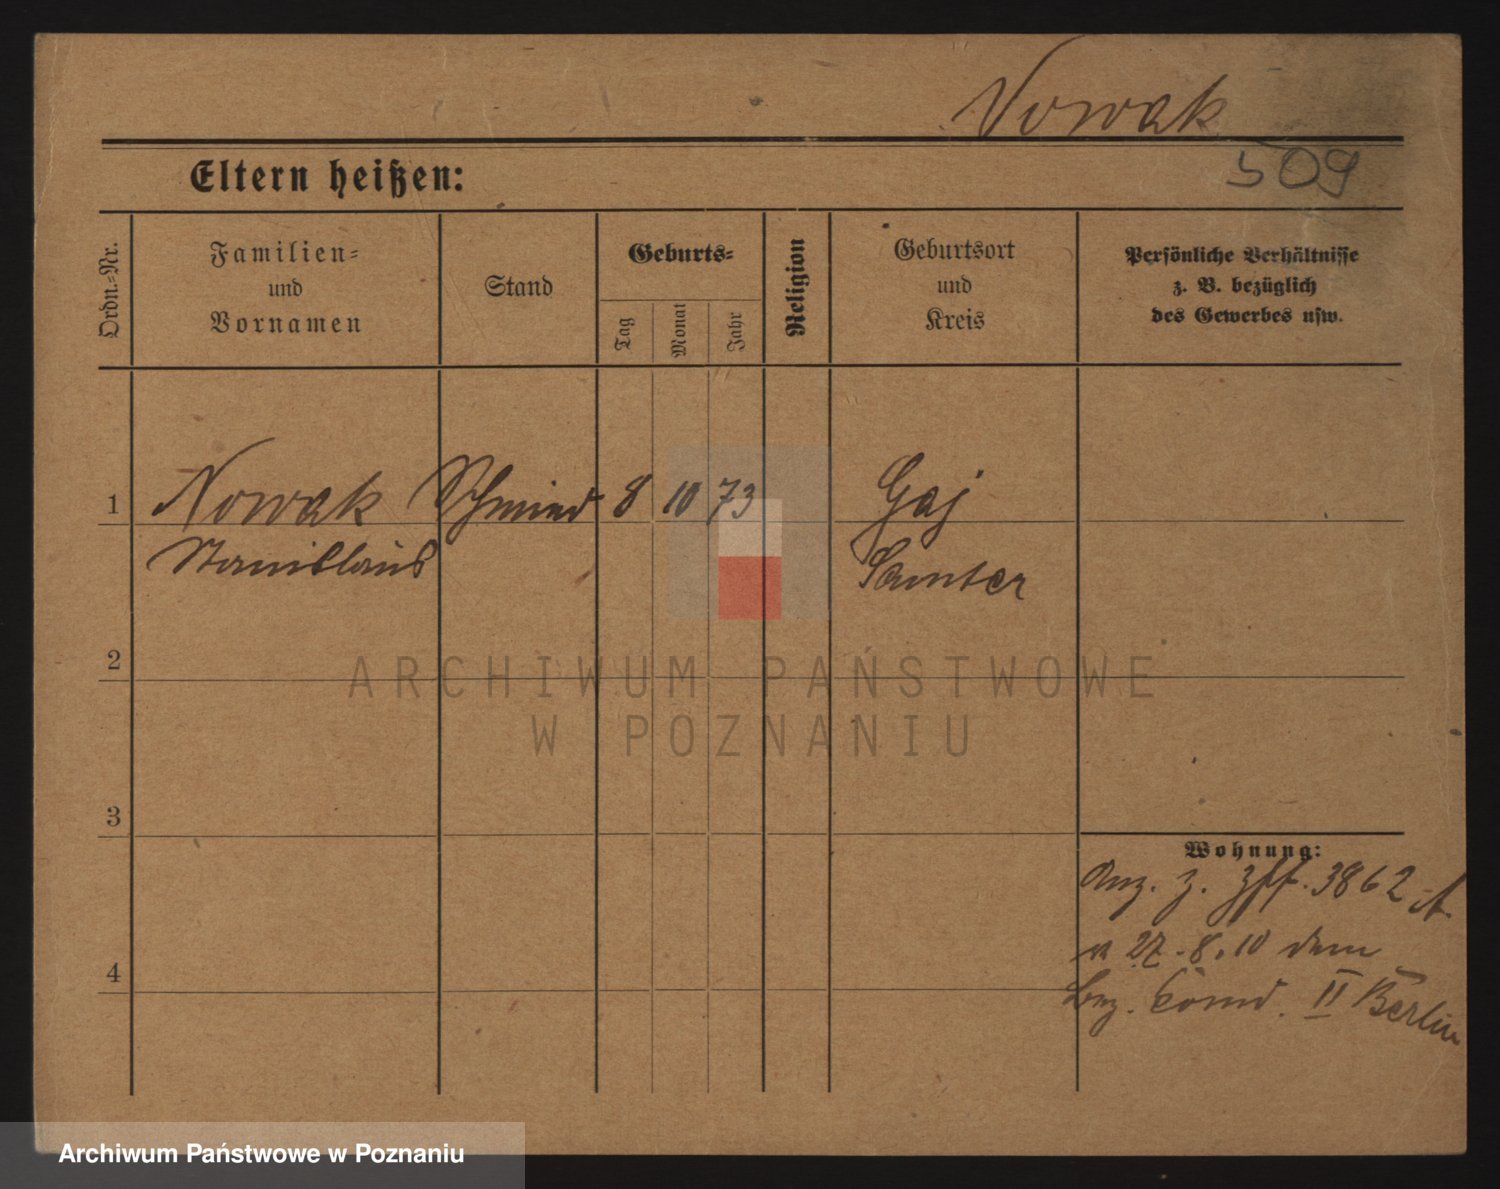 Nowak
509
Eltern heißen:
Ordn.-Nr.
Familien-
und
Vornamen
Stand
Geburts-
Tag
Monat
Jahr
Religion
Geburtsort
und
Kreis
Persönliche Verhältnisse
z. B. bezüglich
des Gewerbes usw.
1
Nowak Schmied 8 10 73 Gaj
Stanislaus Samter
2
ARCHIWUM PAŃSTWOWE
W POZNANIU
3
Wohnung:
Anz. z. 3862
27.8.10 dem
Bez. Comd. II Berlin
4
Archiwum Państwowe w Poznaniu